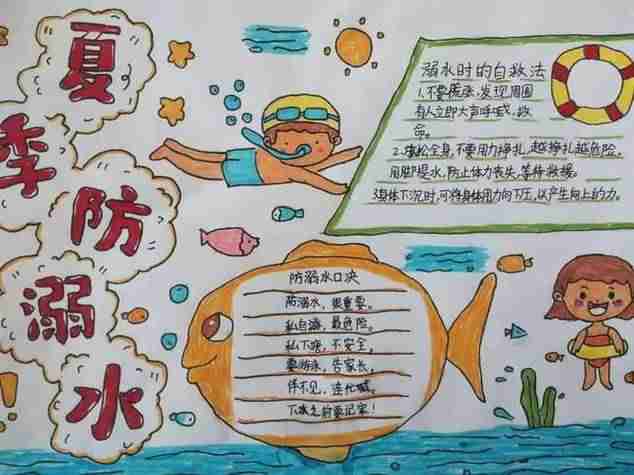 夏季防溺水
溺水时的自救法
1.不要慌张,发现周围
有人立即大声呼喊,救
命。
2.放松全身,不要用力挣扎,越挣扎越危险,
用脚提水,防止体力丧失,等待救援。
3.身体下沉时,可将身体用力向下压,以产生向上的力。
防溺水口决
防溺水,很重要。
私自游,最危险。
私下塘,不安全。
要游泳,告家长,
伴不见,连忙喊。
下水之前要记牢!